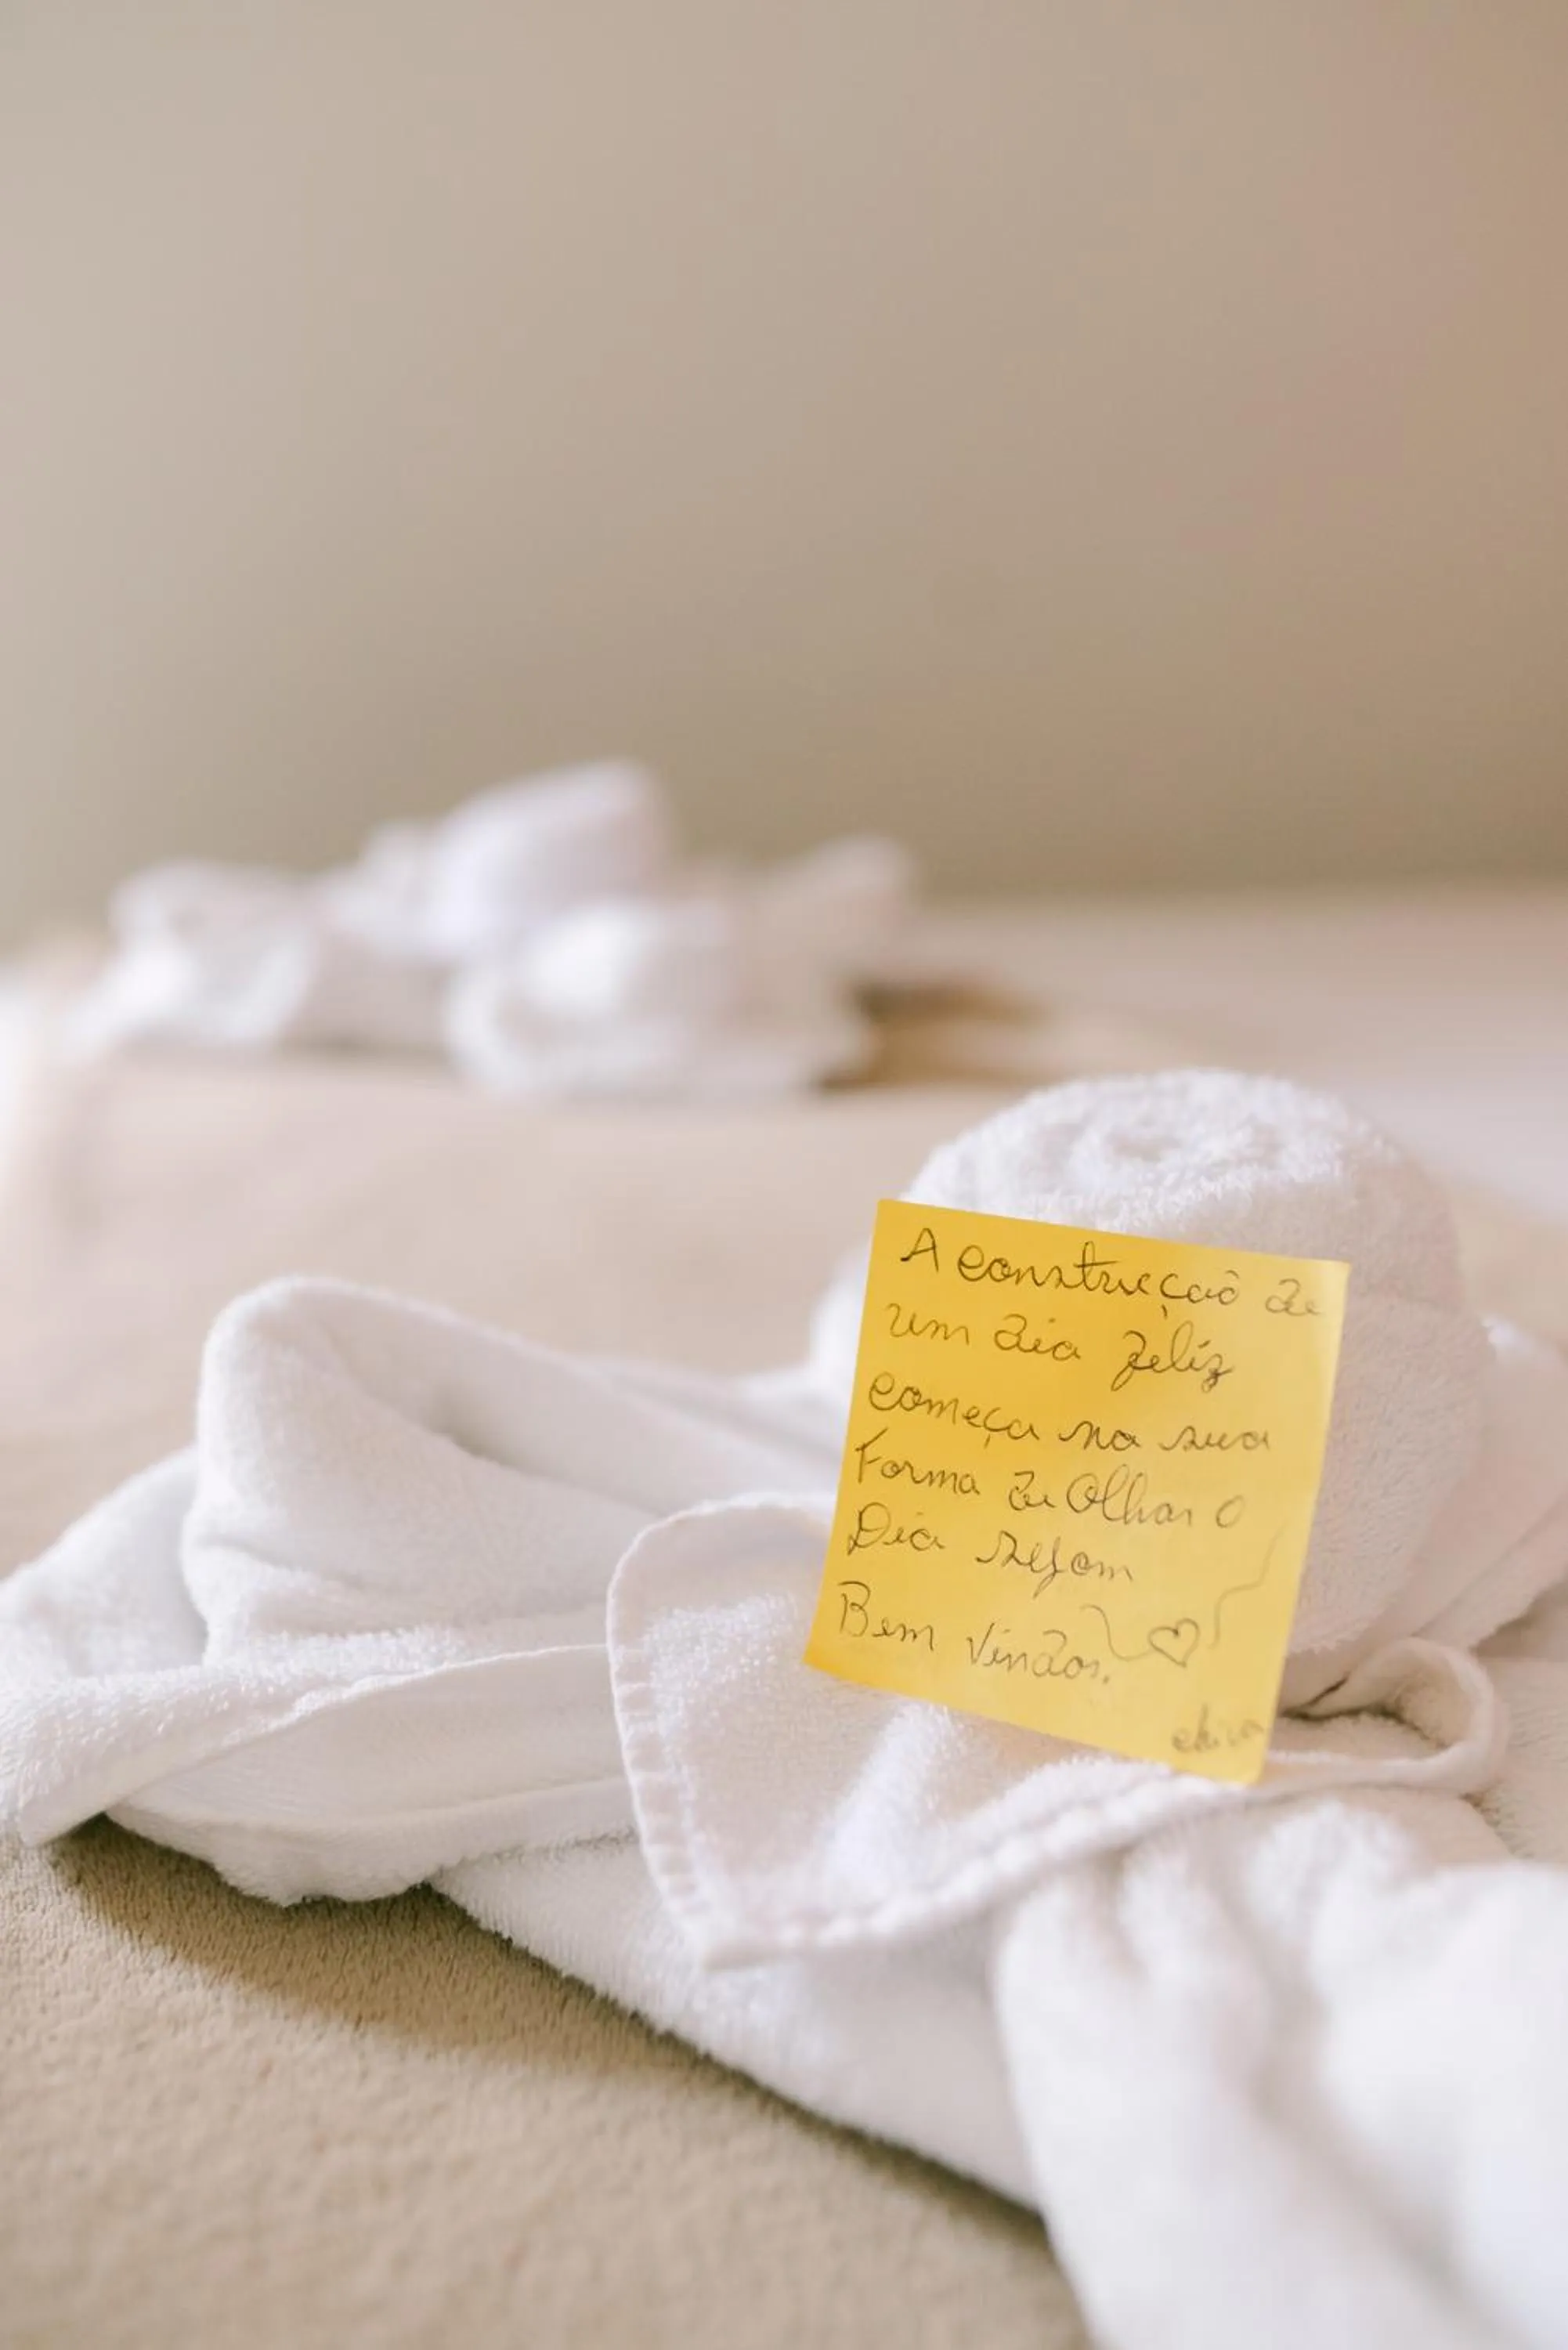 A construção de
um dia feliz
começa na sua
Forma de Olhar o
Dia sejam
Bem Vindos.